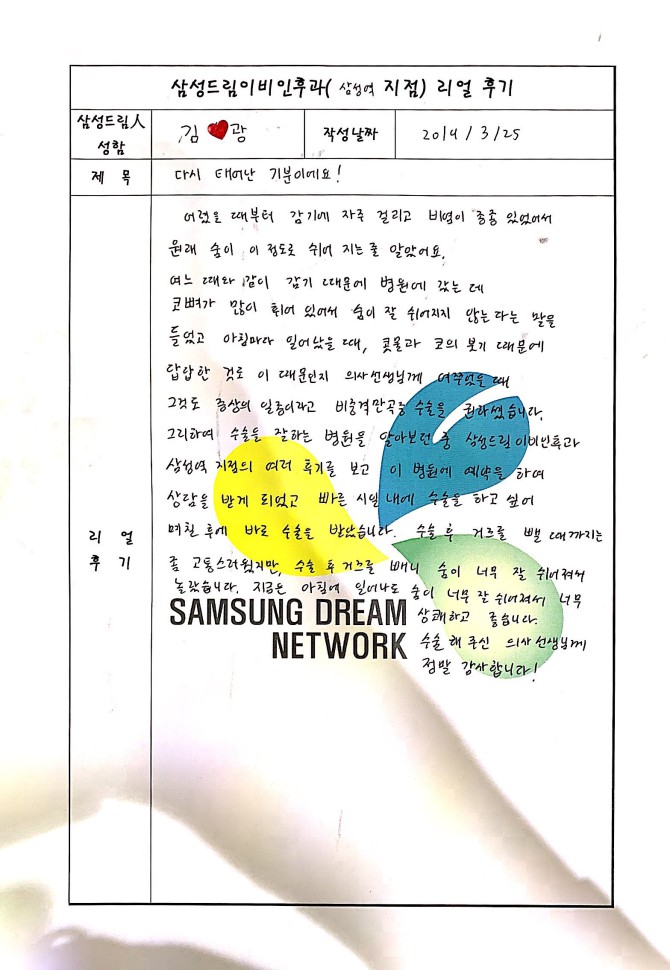 삼성드림이비인후과( 삼성역 지점) 리얼 후기
삼성드림人 성함
김 ❤ 광
작성날짜
2014 / 3 / 25
제 목
다시 태어난 기분이에요!
리 얼 후 기
어렸을 때부터 감기에 자주 걸리고 비염이 종종 있었어서
원래 숨이 이 정도로 쉬어 지는 줄 알았어요.
여느 때와 같이 감기 때문에 병원에 갔는 데
코뼈가 많이 휘어 있어서 숨이 잘 쉬어지지 않는 다는 말을
들었고 아침마다 일어났을 때, 콧물과 코의 붓기 때문에
답답한 것도 이 때문인지 의사선생님께 여쭈었을 때
그것도 증상의 일종이라고 비중격만곡증 수술을 권하셨습니다.
그리하여 수술을 잘하는 병원을 알아보던 중 삼성드림이비인후과
삼성역 지점의 여러 후기를 보고 이 병원에 예약을 하여
상담을 받게 되었고 빠른 시일 내에 수술을 하고 싶어
며칠 후에 바로 수술을 받았습니다. 수술 후 거즈를 뺄 때까지는
좀 고통스러웠지만, 수술 후 거즈를 빼니 숨이 너무 잘 쉬어져서
놀랐습니다. 지금은 아침에 일어나도 숨이 너무 잘 쉬어져서 너무
상쾌하고 좋습니다.
수술 해 주신 의사선생님께
정말 감사합니다!
SAMSUNG DREAM
NETWORK